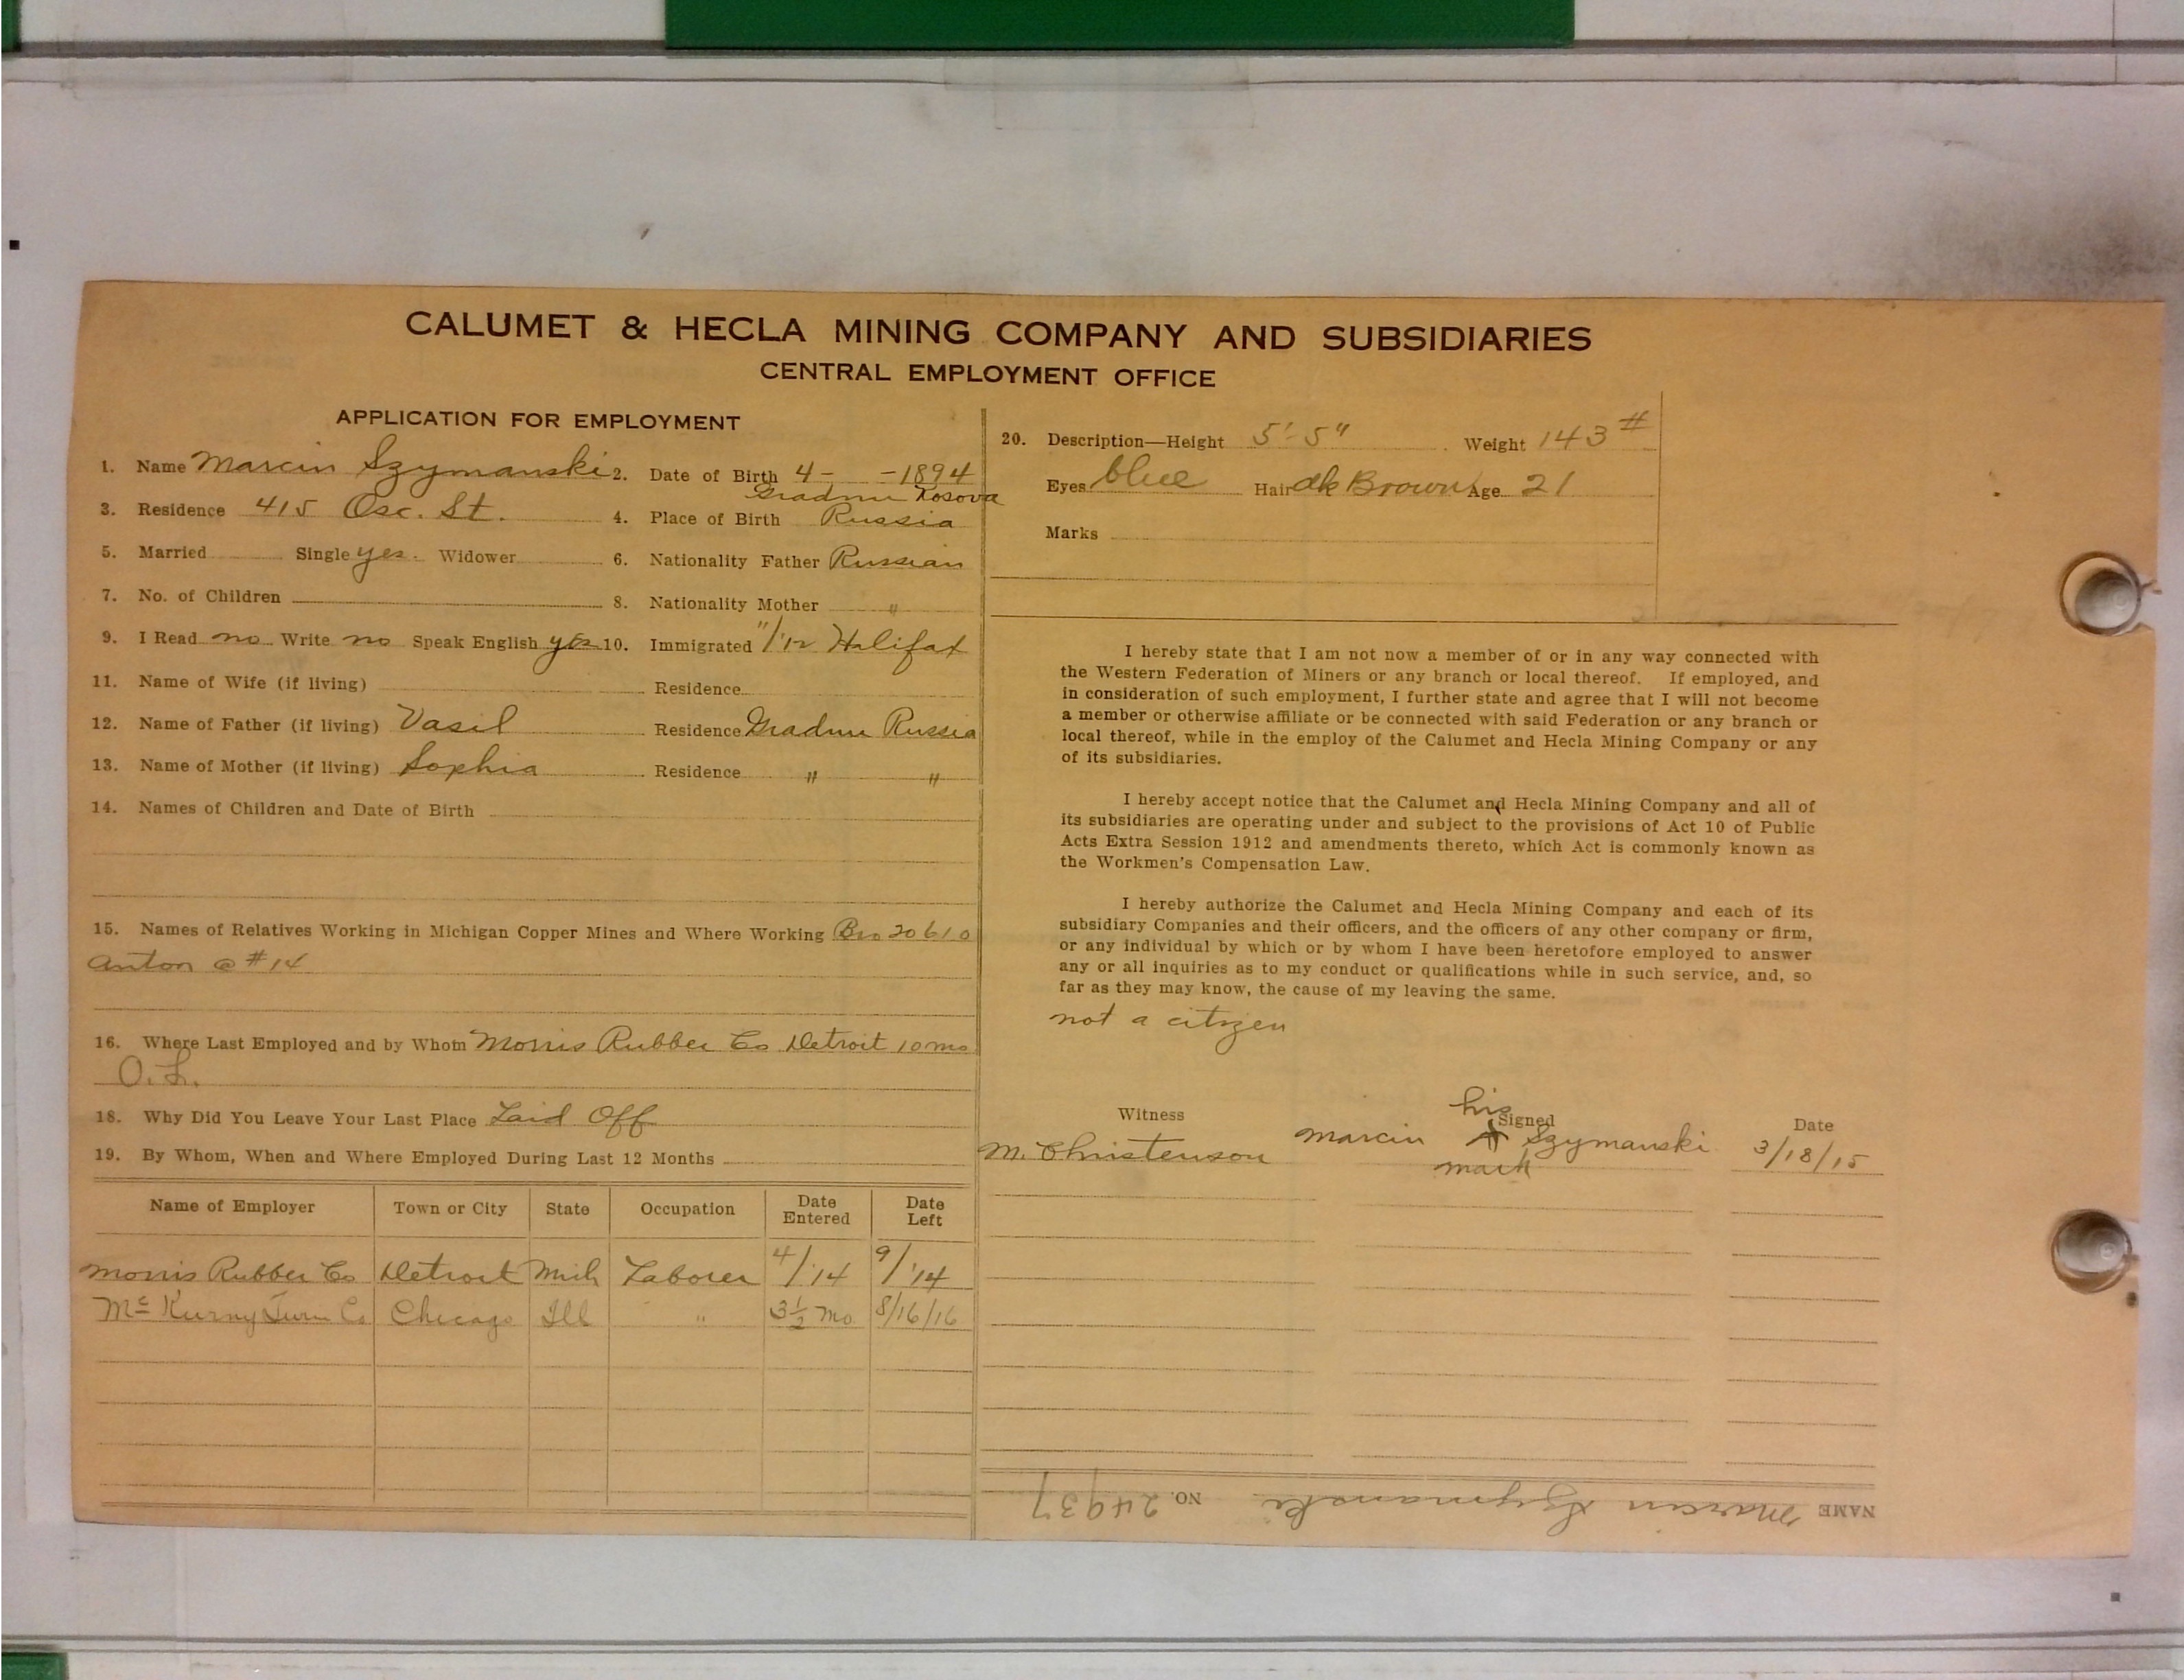 CALUMET & HECLA MINING COMPANY AND SUBSIDIARIES
CENTRAL EMPLOYMENT OFFICE
APPLICATION FOR EMPLOYMENT
1. Name Marcin Szymanski 2. Date of Birth 4- -1894
3. Residence 415 Osc. St. 4. Place of Birth Kosova Russia
5. Married Single yes. Widower 6. Nationality Father Russian
7. No. of Children 8. Nationality Mother "
9. I Read no Write no Speak English yes 10. Immigrated 11/12 Halifax
11. Name of Wife (if living) Residence
12. Name of Father (if living) Vasil Residence Russia
13. Name of Mother (if living) Sophia Residence " "
14. Names of Children and Date of Birth
15. Names of Relatives Working in Michigan Copper Mines and Where Working Bro 20610
Anton @ #14
16. Where Last Employed and by Whom Morris Rubber Co Detroit 10 mo
O.L.
18. Why Did You Leave Your Last Place Laid Off
19. By Whom, When and Where Employed During Last 12 Months
Name of Employer Town or City State Occupation Date Entered Date Left
Morris Rubber Co Detroit Mich Laborer 4/'14 9/'14
Chicago Ill " 3½ Mo 8/16/16
20. Description—Height 5'-5" Weight 143#
Eyes blue Hair dk Brown Age 21
Marks
I hereby state that I am not now a member of or in any way connected with
the Western Federation of Miners or any branch or local thereof. If employed, and
in consideration of such employment, I further state and agree that I will not become
a member or otherwise affiliate or be connected with said Federation or any branch or
local thereof, while in the employ of the Calumet and Hecla Mining Company or any
of its subsidiaries.
I hereby accept notice that the Calumet and Hecla Mining Company and all of
its subsidiaries are operating under and subject to the provisions of Act 10 of Public
Acts Extra Session 1912 and amendments thereto, which Act is commonly known as
the Workmen's Compensation Law.
I hereby authorize the Calumet and Hecla Mining Company and each of its
subsidiary Companies and their officers, and the officers of any other company or firm,
or any individual by which or by whom I have been heretofore employed to answer
any or all inquiries as to my conduct or qualifications while in such service, and, so
far as they may know, the cause of my leaving the same.
not a citizen
Witness Signed Date
his
M. Christenson Marcin X Szymanski 3/18/15
mark
NAME Marcin Szymanski NO. 24937